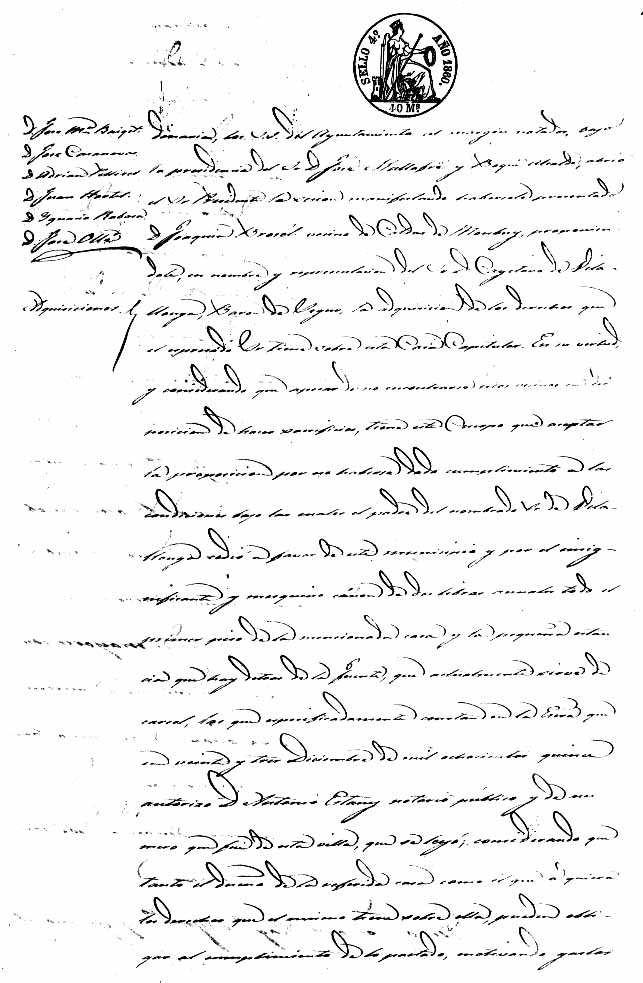 SELLO 4º AÑO 1860.
40 Ms
D. Jose Mª Baiget
D. Jose Casanova
D. Adrian
D. Juan
D. Ygnacio
D. Jose Ollé
Adquisiciones
los S.S. del Ayuntamiento al margen notados, bajo
la presidencia del Sr. D. José Mallafré y Alcalde, abrió
el Sr. Presidente la sesion manifestando haberse presentado
D. Joaquin vecino de Caldas de Monbuy, proponien
dole, en nombre y representacion del Sr. D. Cayetano de Vila-
llonga Baron de Segur, la adquisicion de los derechos que
el espresado Sr. tiene sobre esta Casa Capitular. En su virtud,
y considerando que apesar de no encontrarse estos vecinos en dis
posicion de hacer sacrificios, tiene este Cuerpo que aceptar
la proposicion por no haberse dado cumplimiento á las
condiciones bajo las cuales el padre del nombrado Sr. de Vila-
llonga cedió a favor de este municipio y por el insig-
nificante y mezquino cánon de dos libras anuales todo el
primer piso de la mencionada casa y la pequeña estan
cia que hay detras de la fuente, que actualmente sirve de
carcel, las que especificadamente constan en la Escra que
en veinte y tres Diciembre de mil ochocientos quince
autorizo D. Antonio Estany notario público y de nu
mero que fué de esta villa, que se leyó; considerando que
tanto el dueño de la referida casa como el que á quien
los derechos que el mismo tiene sobre ella, pueden obli-
gar al cumplimiento de lo pactado, motivando gastos